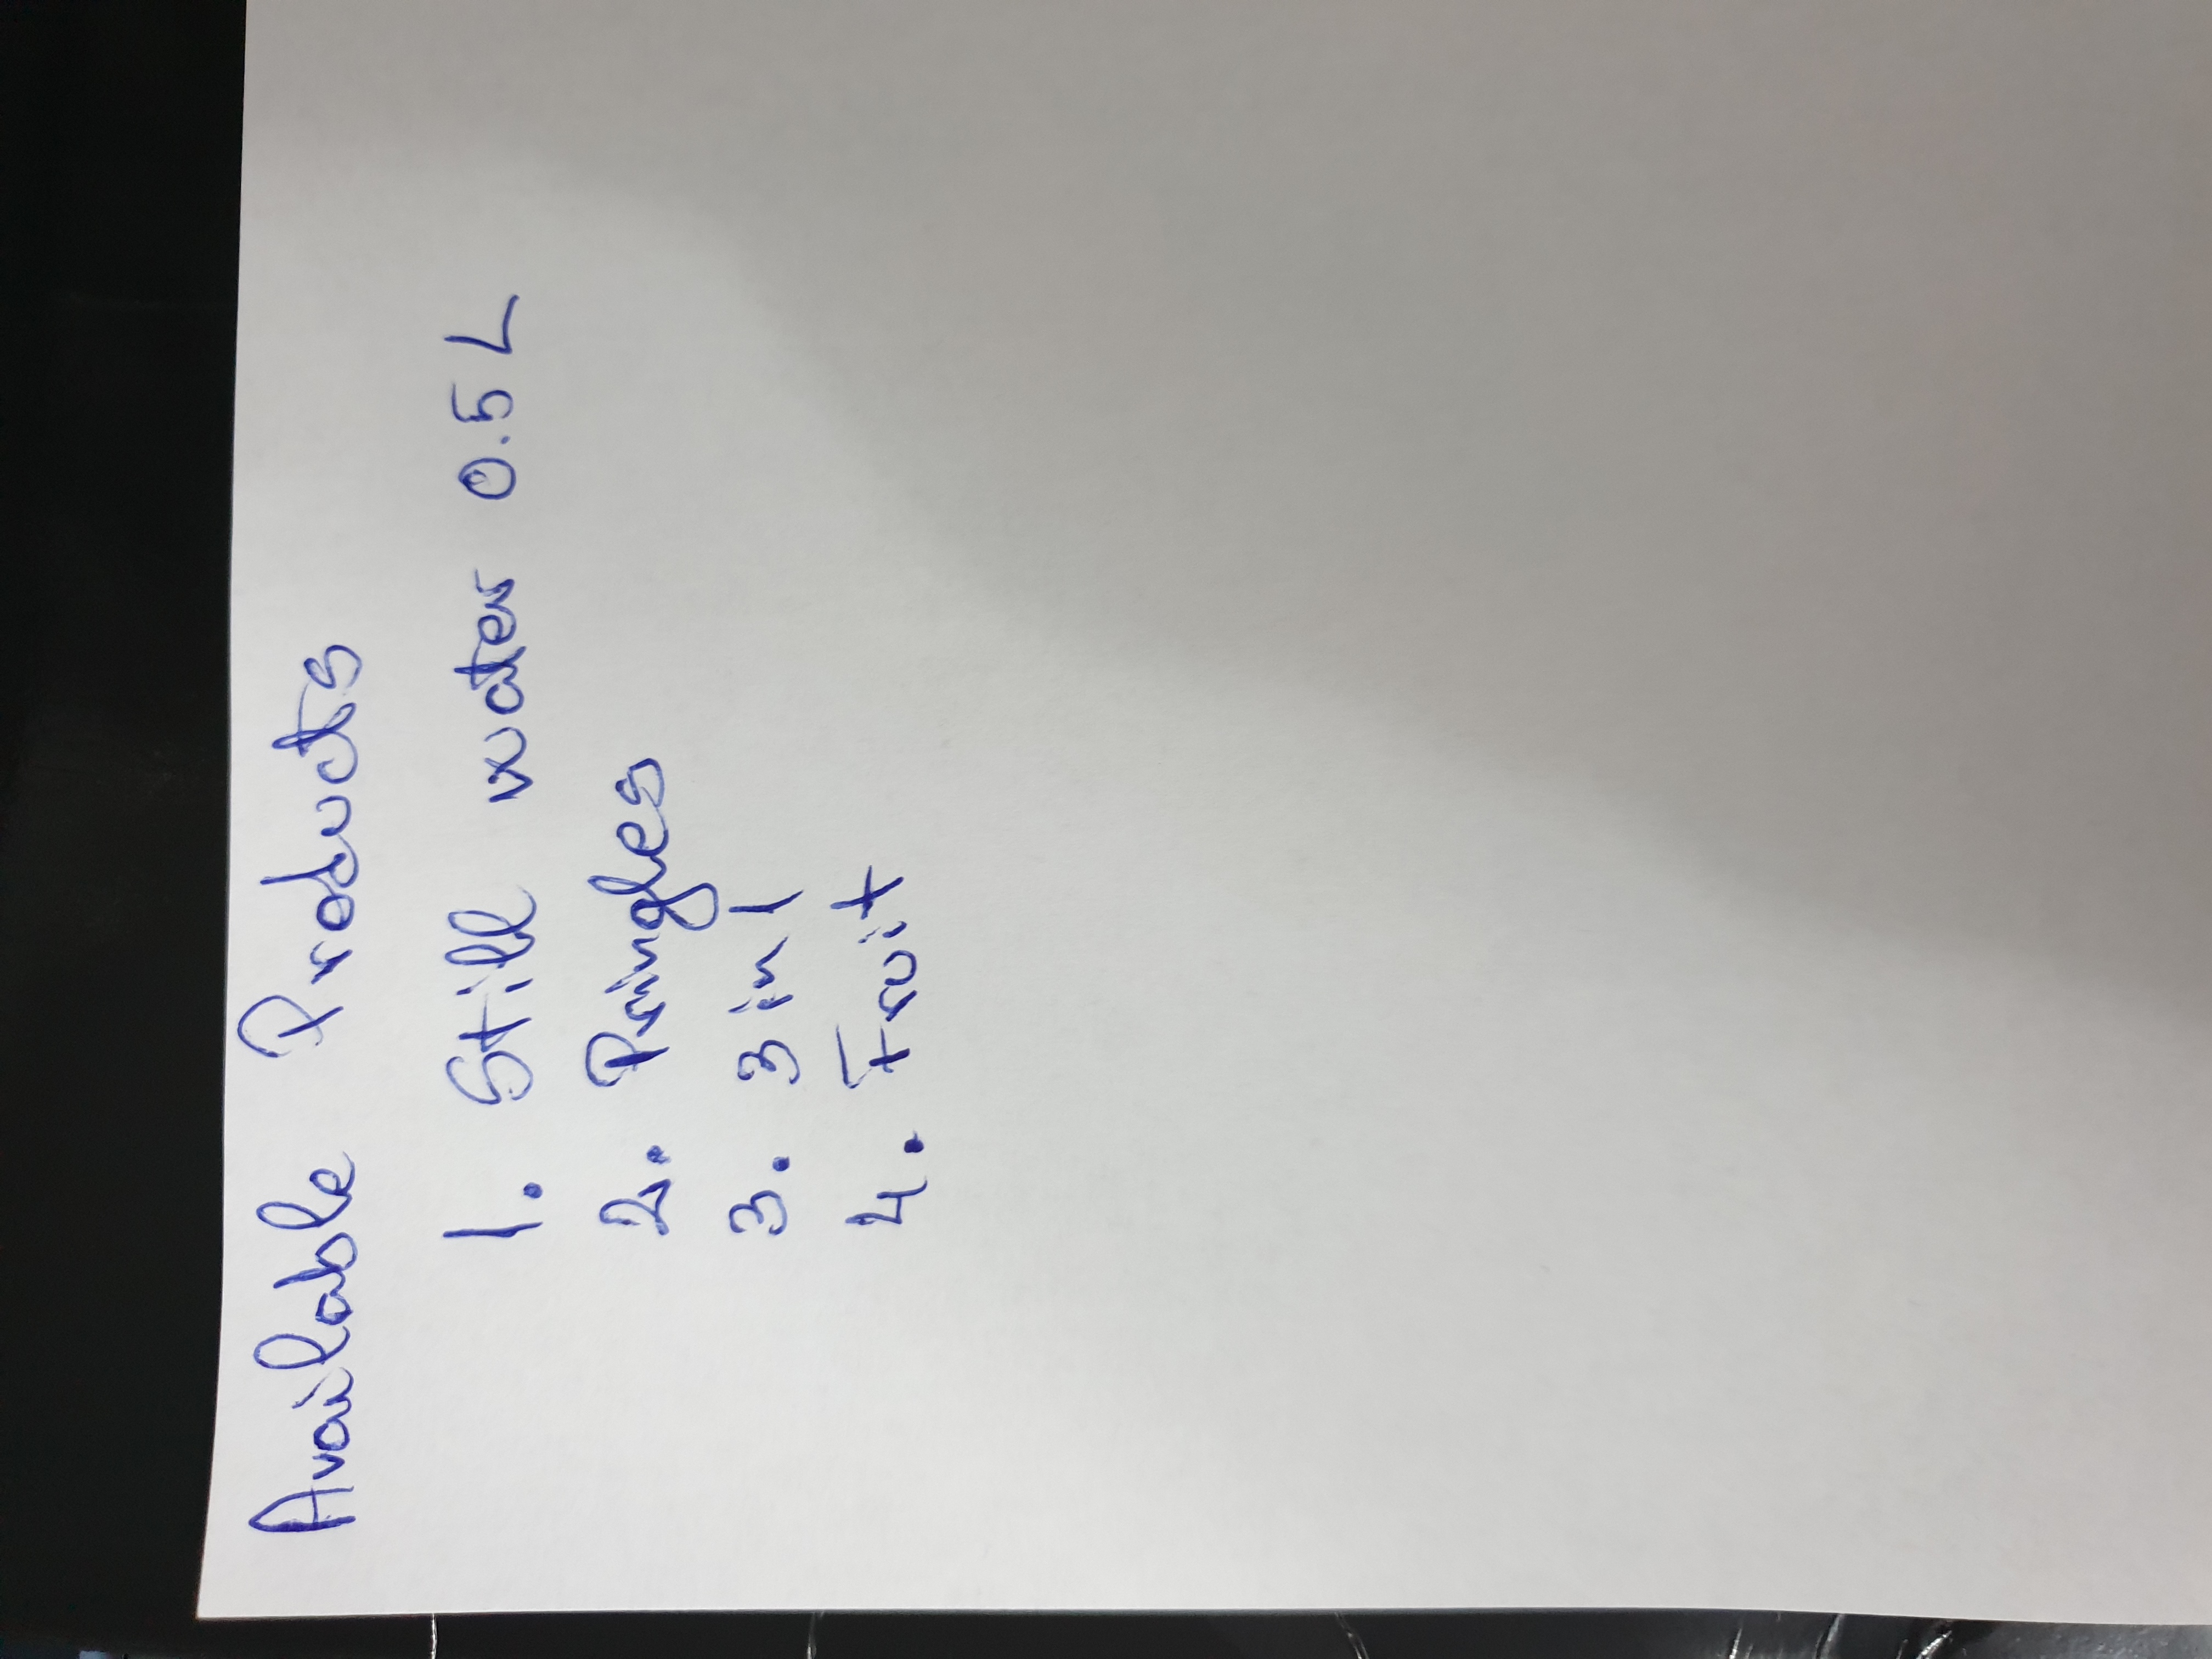 Available Products
1. Still water 0.5 L
2. Pringles
3. 3 in 1
4. Fruit